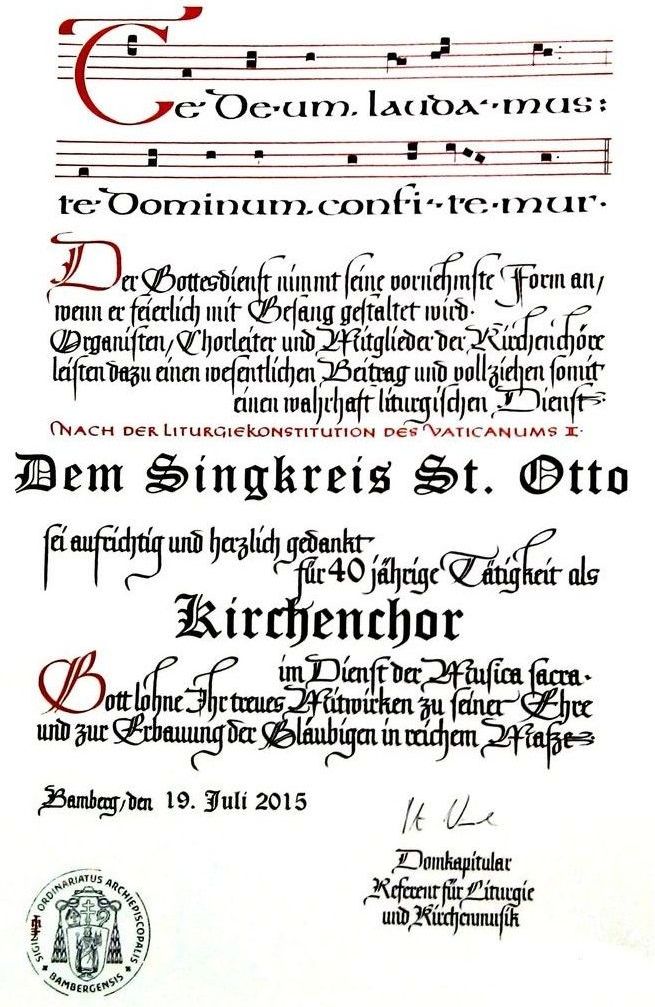 Te De·um. lauda-·mus:
te Dominum. confi-·te·mur.
Der Gottesdienst nimmt seine vornehmste Form an,
wenn er feierlich mit Gesang gestaltet wird.
Organisten, Chorleiter und Mitglieder der Kirchenchöre
leisten dazu einen wesentlichen Beitrag und vollziehen somit
einen wahrhaft liturgischen Dienst.
NACH DER LITURGIEKONSTITUTION DES VATICANUMS II.
Dem Singkreis St. Otto
sei aufrichtig und herzlich gedankt
für 40 jährige Tätigkeit als
Kirchenchor
im Dienst der Musica sacra.
Gott lohne Ihr treues Mitwirken zu seiner Ehre
und zur Erbauung der Gläubigen in reichem Maße.
Bamberg, den 19. Juli 2015
Domkapitular
Referent für Liturgie
und Kirchenmusik
SIGILLUM ORDINARIATUS ARCHIEPISCOPALIS
BAMBERGENSIS